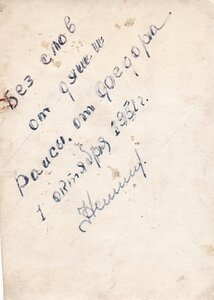 Без слов
от души
Раиси. от Федора
1 октября 1951г.